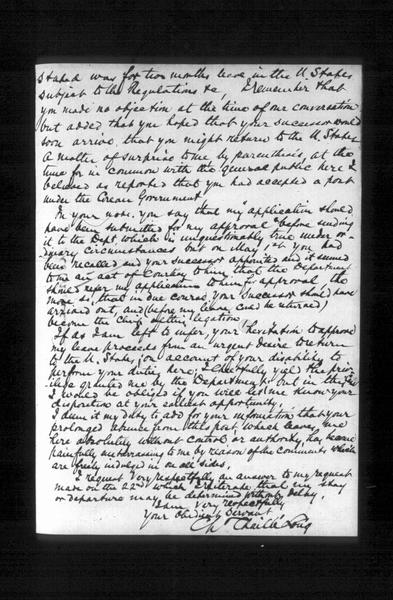 stated way for two months leave in the U. States
subject to the Regulations &c, I remember that
you made no objection at the time of our conversation
but added that you hoped that your successor would
soon arrive, that you might return to the U. States
A matter of surprise to me by parenthesis, at the
time for in common with the general public here I
believed as reported that you had accepted a post
under the Corean Government.
In your note you say that my "application should
have been submitted for my approval" before sending
it to the Dept which is unquestionably true under or-
dinary circumstances but on May 1st you had
been recalled and your successor appointed and it seemed
to me an act of Courtesy to him that the Department
should refer my application to him for approval, the
more so, that in due course, your successor should have
arrived out, and (before my leave could be returned)
become the Chief of this legation.
If as I am left to infer, your hesitation to approve
my leave proceeds from an urgent desire to return
to the U. States, on account of your disability to
perform your duties here, I cheerfully yield the priv-
ilege granted me by the Department, but in that
I would be obliged if you will let me know your
disposition at your earliest opportunity.
I deem it my duty to add for your information that your
prolonged absence from this post, which leaves me
here absolutely without control or authority, has become
painfully embarrassing to me by reason of the comments, which
are freely indulged in on all sides.
I request very respectfully an answer to my request
made on the 22d which I reiterate that my stay
or departure may be determined without delay.
I am, very respectfully
Your Obedient Servant
Ch Chaillé Long